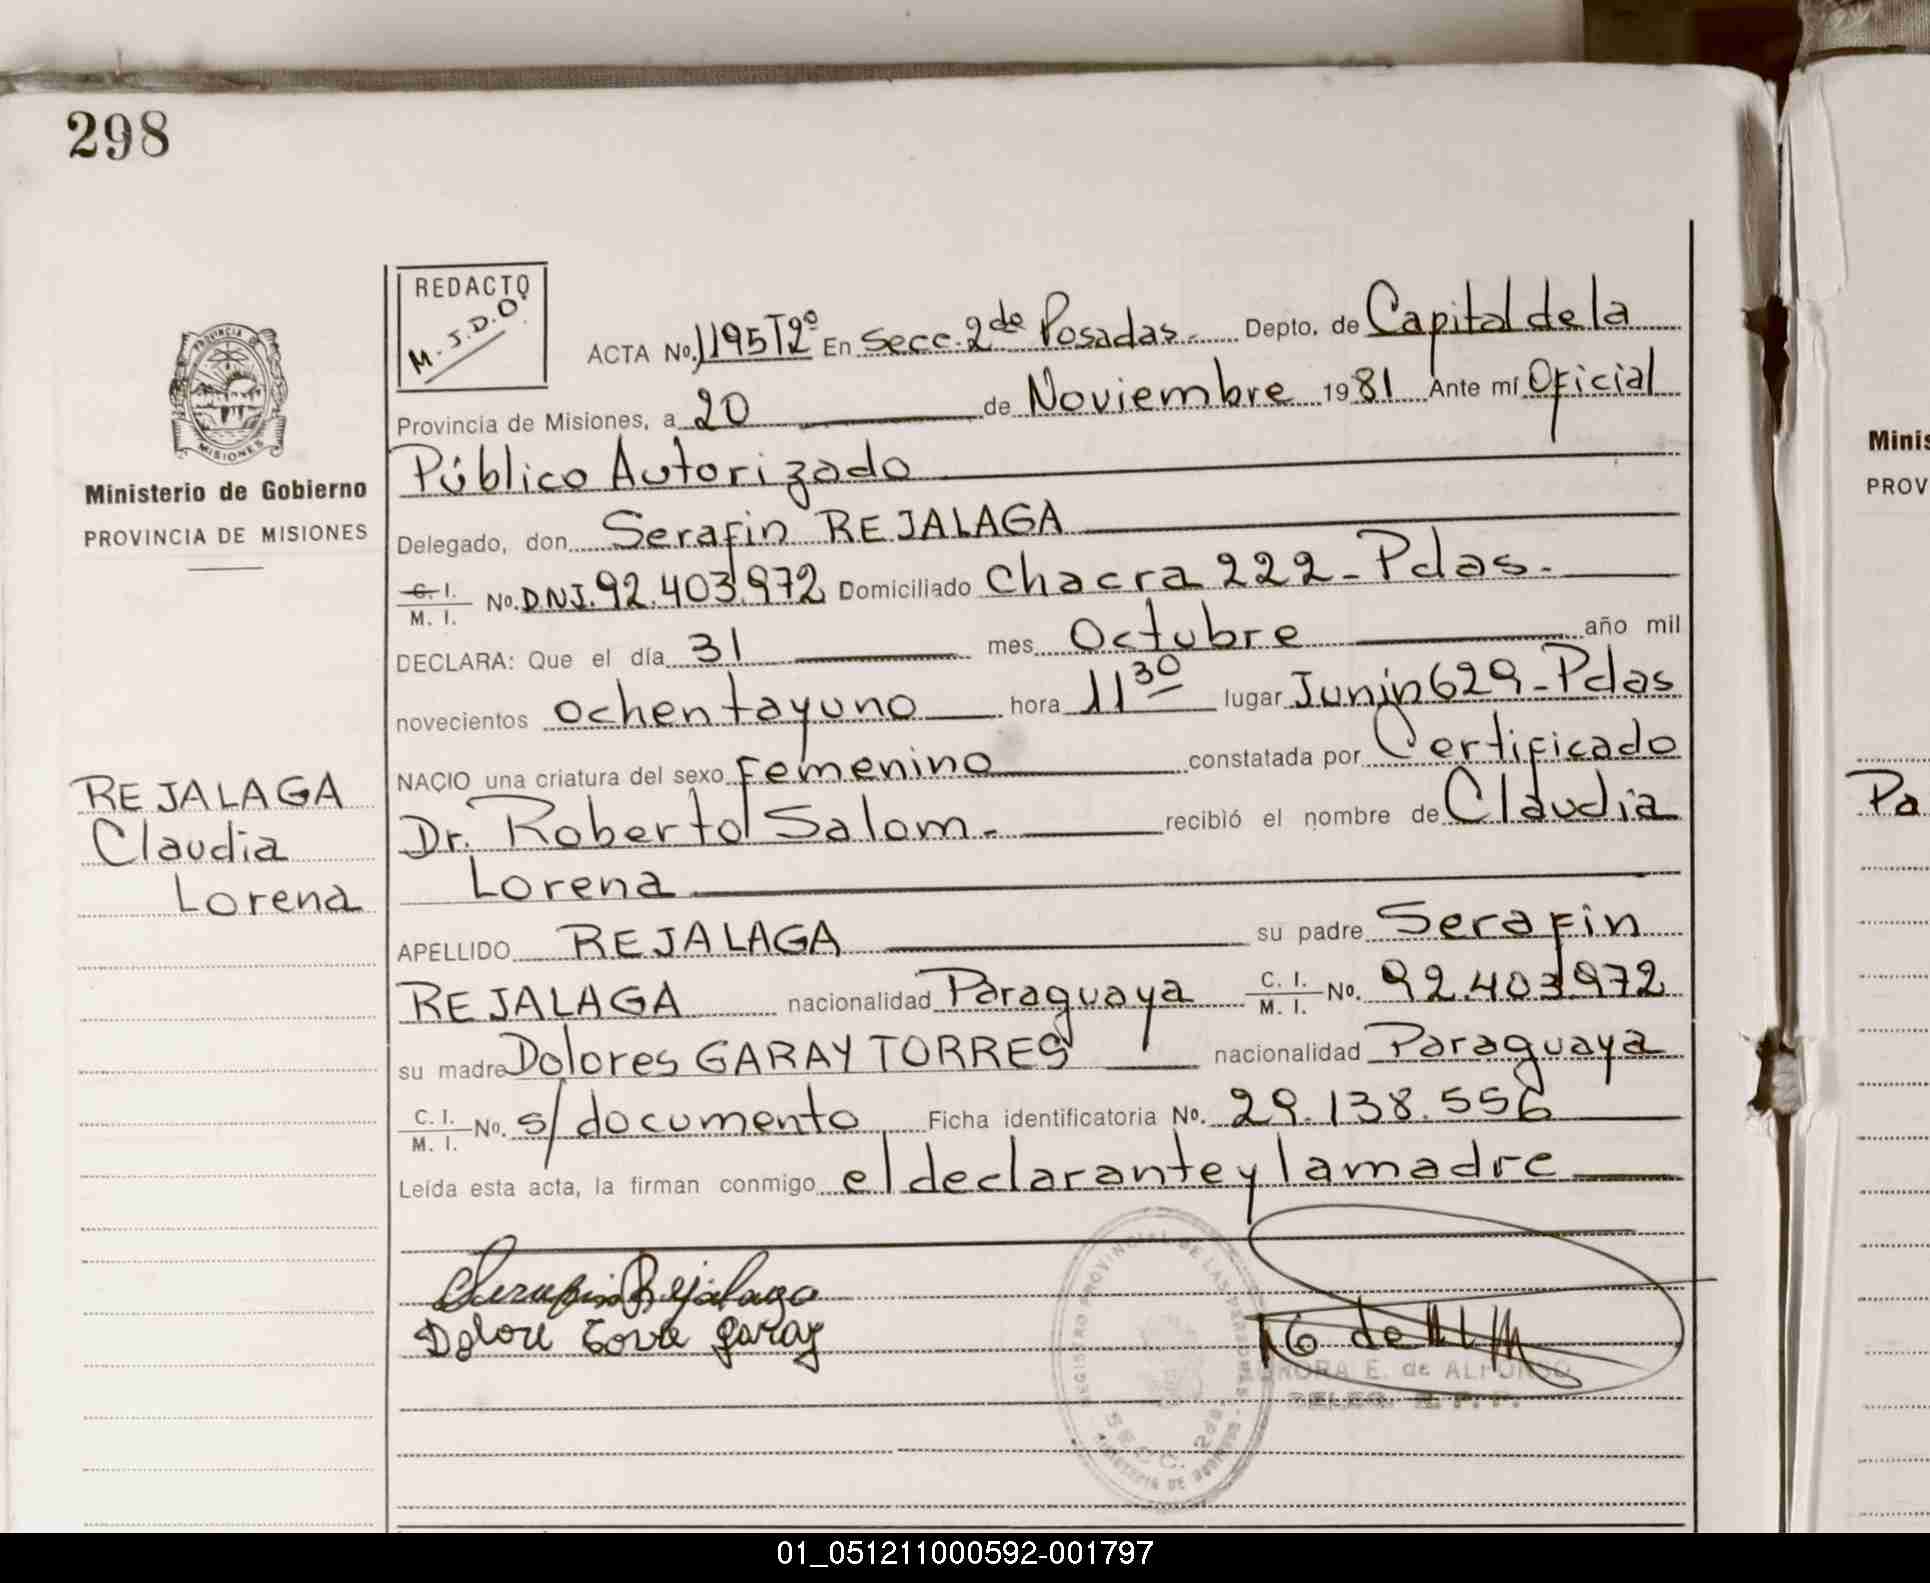 298
REDACTO
M.J.D.O.
ACTA No. 1195T2º En Secc. 2da Posadas. Depto. de Capital de la
Provincia de Misiones, a 20 de Noviembre 1981 Ante mí Oficial
Público Autorizado
Delegado, don Serafin REJALAGA
C. I.
M. I. No. DNI. 92.403.972 Domiciliado Chacra 222 - Pdas.
DECLARA: Que el día 31 mes Octubre año mil
novecientos ochentayuno hora 11 30 lugar Junin 629 - Pdas
NACIO una criatura del sexo Femenino constatada por Certificado
Dr. Roberto Salom. recibió el nombre de Claudia
Lorena
APELLIDO REJALAGA su padre Serafin
REJALAGA nacionalidad Paraguaya C. I. M. I. No. 92.403.972
su madre Dolores GARAY TORRES nacionalidad Paraguaya
C. I. M. I. No. s/documento Ficha identificatoria No. 29.138.556
Leída esta acta, la firman conmigo el declarante y la madre
Serafin Rejalaga
Dolore Torre garay
REGISTRO PROVINCIAL DE LAS PERSONAS
SECC. 2da.
E. de ALFONSO
DELEG. R. P. P.
PROVINCIA
MISIONES
Ministerio de Gobierno
PROVINCIA DE MISIONES
REJALAGA
Claudia
Lorena
Minis
PROV
Pa
01_051211000592-001797